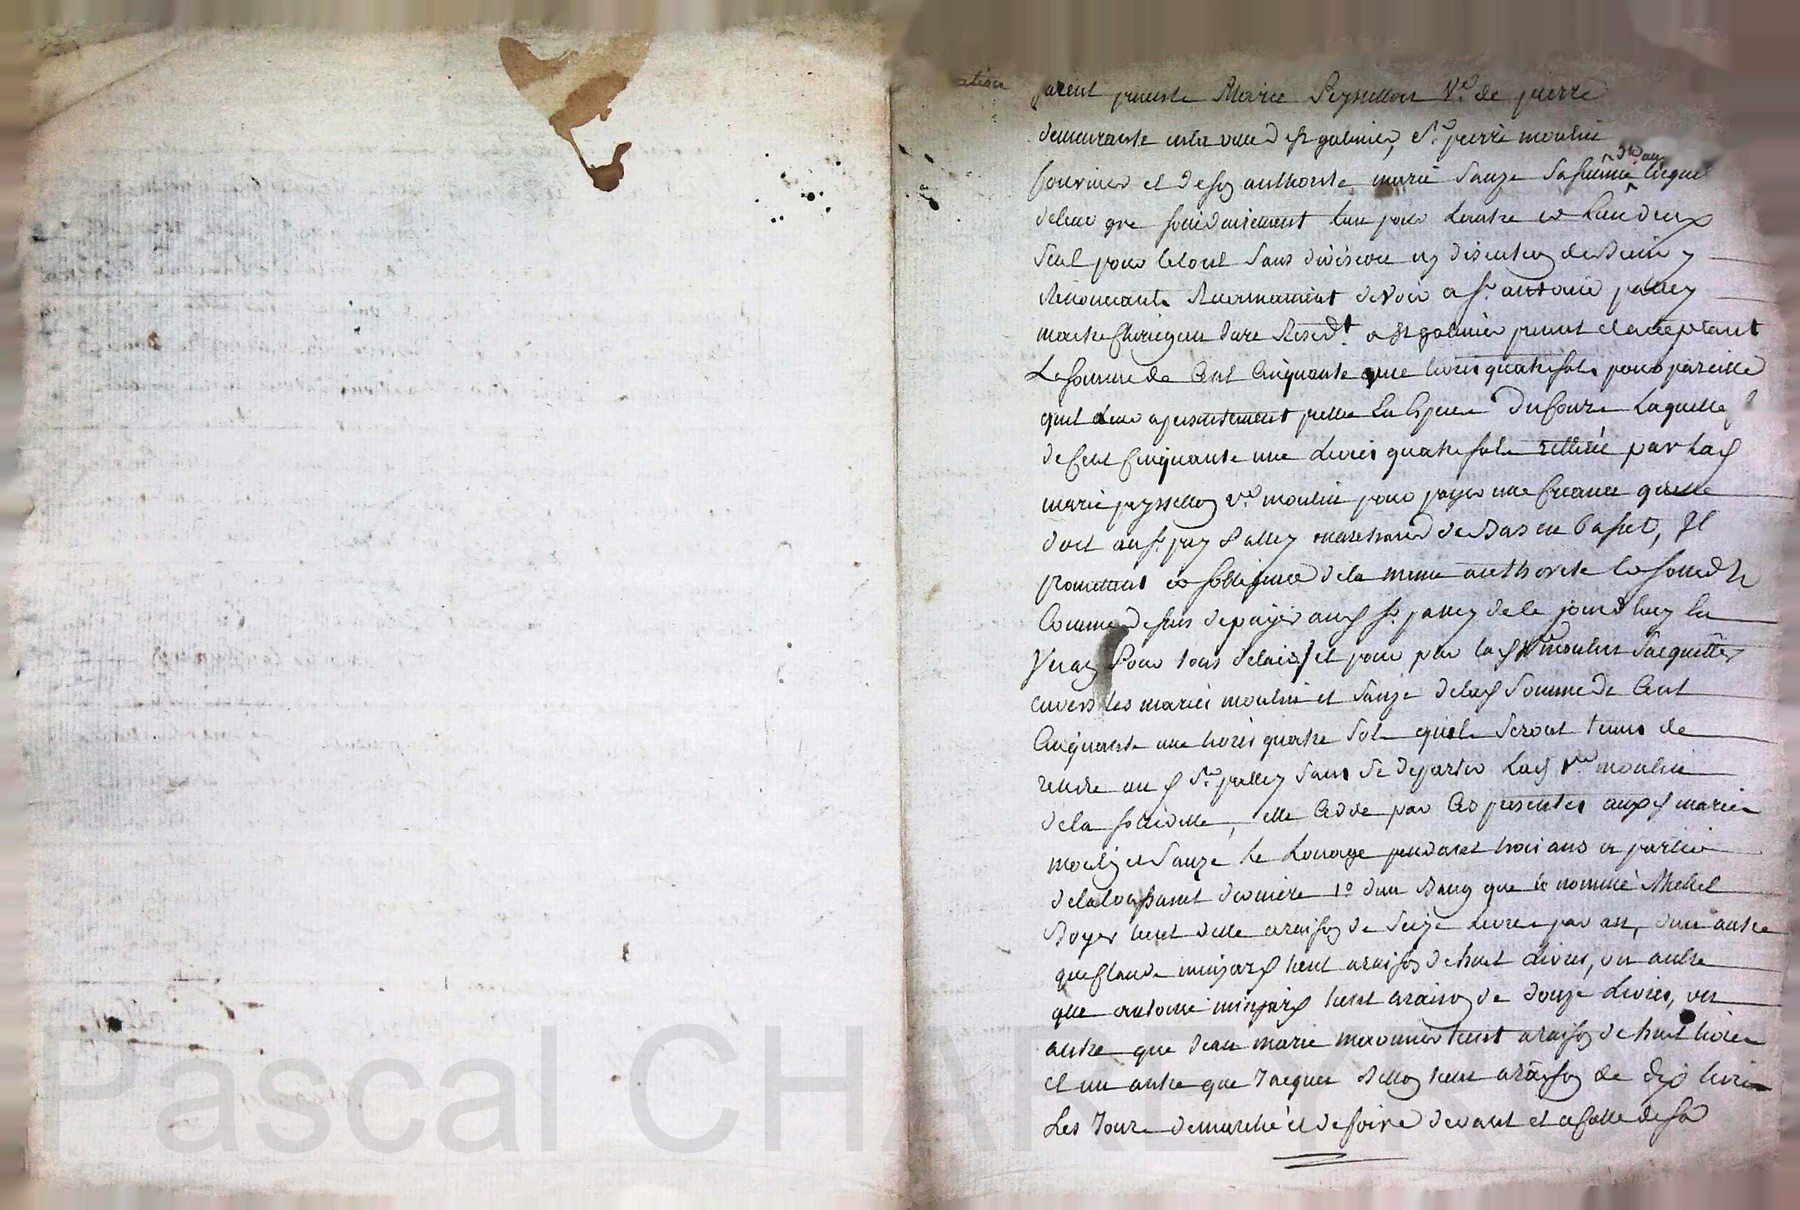 furent presente Marie Peyssellon Ve. de pierre
demeurante en la ville de st galmier, Sr. pierre moulin
fournier et de son authorité marié Sauze sa femme
de leur gré solidairement l'un pour l'autre et l'un d'eux
seul pour le tout sans division ny discution de
Renoncants Reconnaissent devoir a Sr. antoine pallay
maitre Chirurgien Juré Residt. a st galmier present et acceptant
La somme de Cent Cinquante une livres quatre sols pour pareille
quil leur a presentement pretté En Especes du Cours Laquelle
de Cent Cinquante une Livres quatre sols rettirée par lad
marie peyssellon ve moulin pour payer une Creance quelle
doit au sr. pallay marchand de Bas en Basset, Il
promettent et s'obligent de la meme authorité et solidte
Comme dessus de payer aud sr. pallay de ce jourd'huy En
Un an Pour tous delais, et pour par lad ve moulin s'acquitter
envers les mariés moulin et Sauze de lad Somme de Cent
Cinquante une livres quatre Sols quils seront tenus de
rendre au d Sr. pallay sans se departir Lad ve moulin
de la solidité, elle Cedde par Ces presentes auxd mariés
moulin et Sauze le Louage pendant trois ans a partir
de la toussaint derniere 1o d'un Banq que le nommé Michel
Boyer tient d'elle a raison de Seize Livres par an, d'un autre
que Claude tient a raison de huit Livres, un autre
que antoine tient a raison de douze Livres, un
autre que Jean marie tient a raison de huit livres
et un autre que Jacques tient a raison de dix livres
Les Jours de marché et de foire devant et a coste de sa
Pascal CHAR